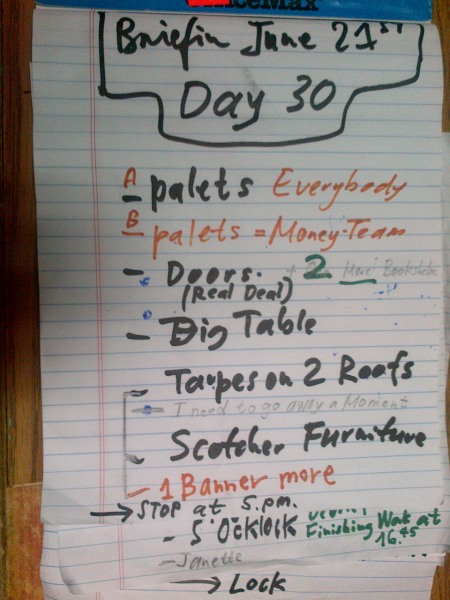 ceMax
Briefin June 21st
Day 30
A palets Everybody
B palets = Money-Team
- Doors. + 2 More Bookshelve
(Real Deal)
- Big Table
- Tarpes on 2 Roofs
- I need to go away a Moment
- Scotcher Furniture
- 1 Banner more
→ STOP at 5.p.m.
- 5 O'cklock Finishing Work at
16.45
- Janette
→ Lock